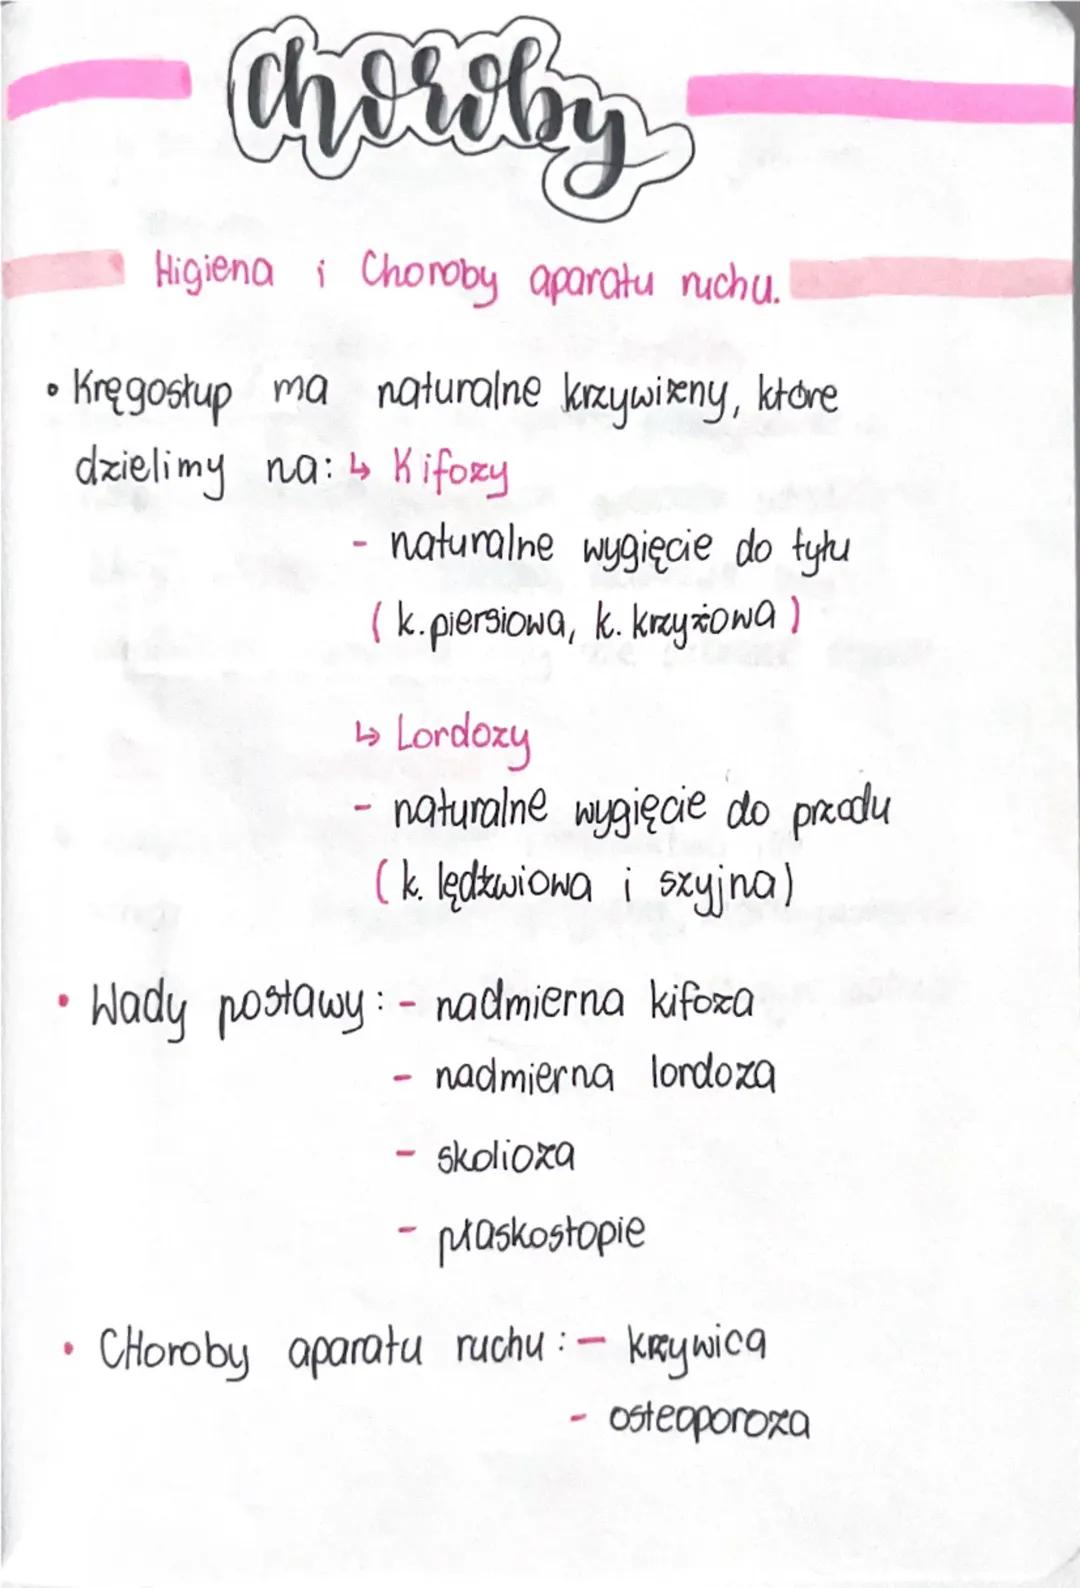 Choroby
Higiena i Choroby aparatu ruchu.
• Kręgosłup ma naturalne krzywizny, które
dzielimy na: ↳ Kifozy
- naturalne wygięcie do tyłu
(k. piersiowa, k. krzyżowa)
↳ Lordozy
- naturalne wygięcie do przodu
(k. lędźwiowa i szyjna)
• Wady postawy: - nadmierna kifoza
- nadmierna lordoza
- skolioza
- płaskostopie
• CHoroby aparatu ruchu: - krzywica
- osteoporoza